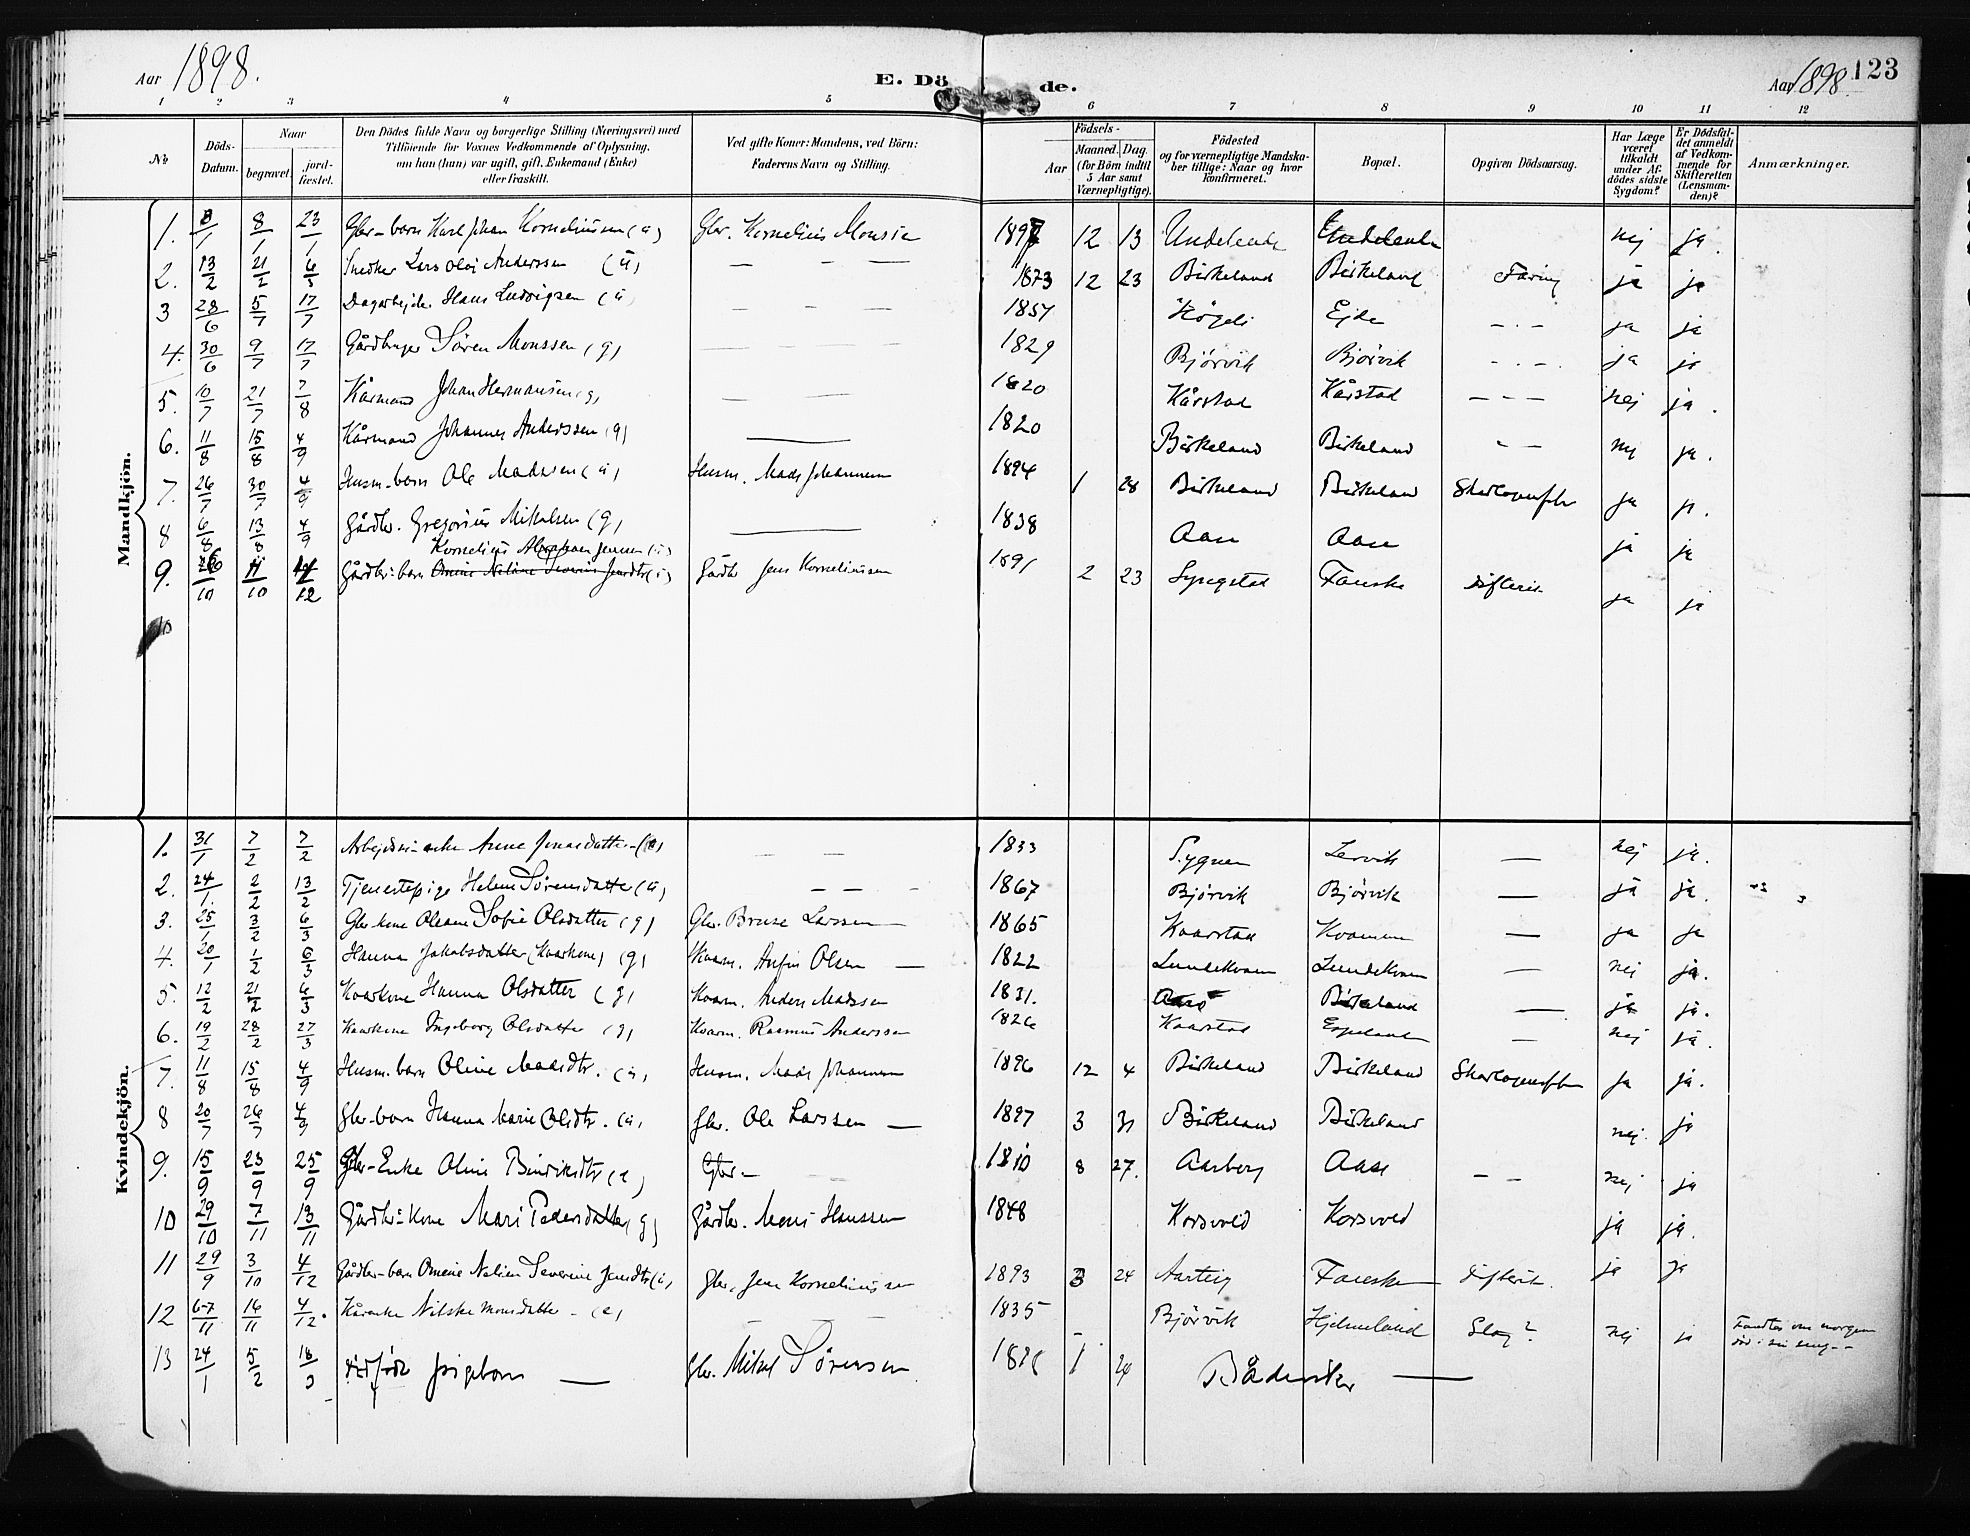 Aar 1898. E. Dö de. Aar 1898. 123
1 2 3 4 5 6 7 8 9 10 11 12
No
Döds-Datum.
Naar begravet. jord-fæstet.
Den Dødes fulde Navn og borgerlige Stilling (Næringsvei) med
Tilföiende for Voxnes Vedkommende af Oplysning,
om han (hun) var ugift, gift, Enkemand (Enke)
eller fraskilt.
Ved gifte Koner: Mandens, ved Börn:
Faderens Navn og Stilling.
Födsels-
Aar Maaned. Dag.
(for Börn indtil
5 Aar samt
Værnepligtige).
Födested
og for værnepligtige Mandska-
ber tillige: Naar og hvor
konfirmeret.
Bopæl.
Opgiven Dödsaarsag.
Har Læge
været
tilkaldt
under Af-
dødes sidste
Sygdom?
Er Dødsfal-
det anmeldt
af Vedkom-
mende for
Skifteretten
(Lensman-
den)?
Anmærkninger.
Mandkjön.
1. 8/1 8/1 23/1 Gbr-barn Karl Johan Korneliussen (u) Gbr. Kornelius Monsen 1897 12 13 Undeland Undeland nej ja.
2. 13/2 21/2 Snedker Lars Olai Anderssen (u) — — — 1873 12 23 Birkeland Birkeland Tæring ja ja
3 28/6 5/7 17/7 Dagarbejder Hans Ludvigsen (u) — — — 1857 Ejde — . — ja ja
4. 30/6 9/7 17/7 Gårdbruger Søren Monssen (g) — — — — 1829 Bjørvik Bjørvik - . - . ja ja
5. 10/7 21/7 7/8 Kårmand Johan Hermansen (g) — — — 1820 Kårstad Kårstad — - - — nej ja.
6. 11/8 15/8 4/9 Kårmand Johannes Anderssen (g) — 1820 Birkeland Birkeland - — nej ja.
7. 26/7 30/7 4/9 Husm-barn Ole Madssen (u) Husm. Mads Johannessen 1894 1 28 Birkeland Birkeland Skarlagensfeber ja ja.
8 6/8 13/8 4/9 Gårdbr. Gregorius Mikalsen (g) — 1838 Aase Aase ja ja
Kornelius Abraham Jensen (u)
9. 26/10 11/10 4/12 Gårdbr-barn Omine Neline Severine Jensdtr (u) Gårdbr Jens Korneliussen 1891 2 23 Syngstad Fauske difterit. ja ja
10
Kvindekjön.
1. 31/1 7/2 7/2 Arbejdsm-enke Anne Jonasdatter - (e) — — 1833 Sygnen Lervik — nej ja.
2. 24/1. 2/2 13/2 Tjenestepige Helene Sørensdatter (u) — — - 1867 Bjørvik Bjørvik — ja ja.
3. 25/1 3/2 6/3 Gbr-kone Oleane Sofie Olsdatter (g) Gbr. Larssen — 1865 Kaarstad Kvamen — ja ja
4. 20/1 1/2 6/3 Hanna Jakobsdatter (Kaarkone) (g) Kaarm. Anfin Olsen — 1822 Lundekvam Lundekvam — nej ja.
5. 12/2 21/2 6/3 Kaarkone Hanna Olsdatter (g) Kaarm. Anders Madssen 1831. Birkeland — ja ja.
6. 19/2 28/2 27/3 Kaarkone Ingeborg Olsdatter (g) Kaarm. Rasmus Anderssen 1826 Kaarstad Espeland — nej ja.
7. 11/8 15/8 4/9 Husm.barn Oline Madsdtr. (u) Husm. Mads Johannessen 1896 12 4 Birkeland Birkeland Skarlagensfeber ja ja.
8 20/7 26/7 4/9 Gbr-barn Hanna Marie Olsdtr. (u) Gbr. Ole Larssen — 1897 3 31 Birkeland Birkeland nej. ja
9. 15/9 23/9 25/9 Gbr-Enke Oline Bendiksdtr (e) Gbr. — — 1810 8 27. Aarberg Aase — — nej ja
10 29/10 7/11 13/11 Gårdbr-kone Mari Pedersdatter (g) Gårdbr. Mons Hanssen 1848 Korsvold Korsvold ja ja.
11 29/9 3/10 4/12 Gårdbr-barn Omine Neline Severine Jensdtr (u) Gbr. Jens Korneliussen 1893 3 24 Aarteig Fauske difterit. ja ja
12 6-7/11 16/11 4/12. Kårenke Nilske Monsdatter - (e) — — — 1835 Bjørvik Hjelmeland Slag? nej ja Fandtes om morgenen
död i sin seng - -
13 24/1 5/2 18/ dødfødt pigebarn — Gbr. Mikal Sørensen 1898 1 24 Bådsvik —